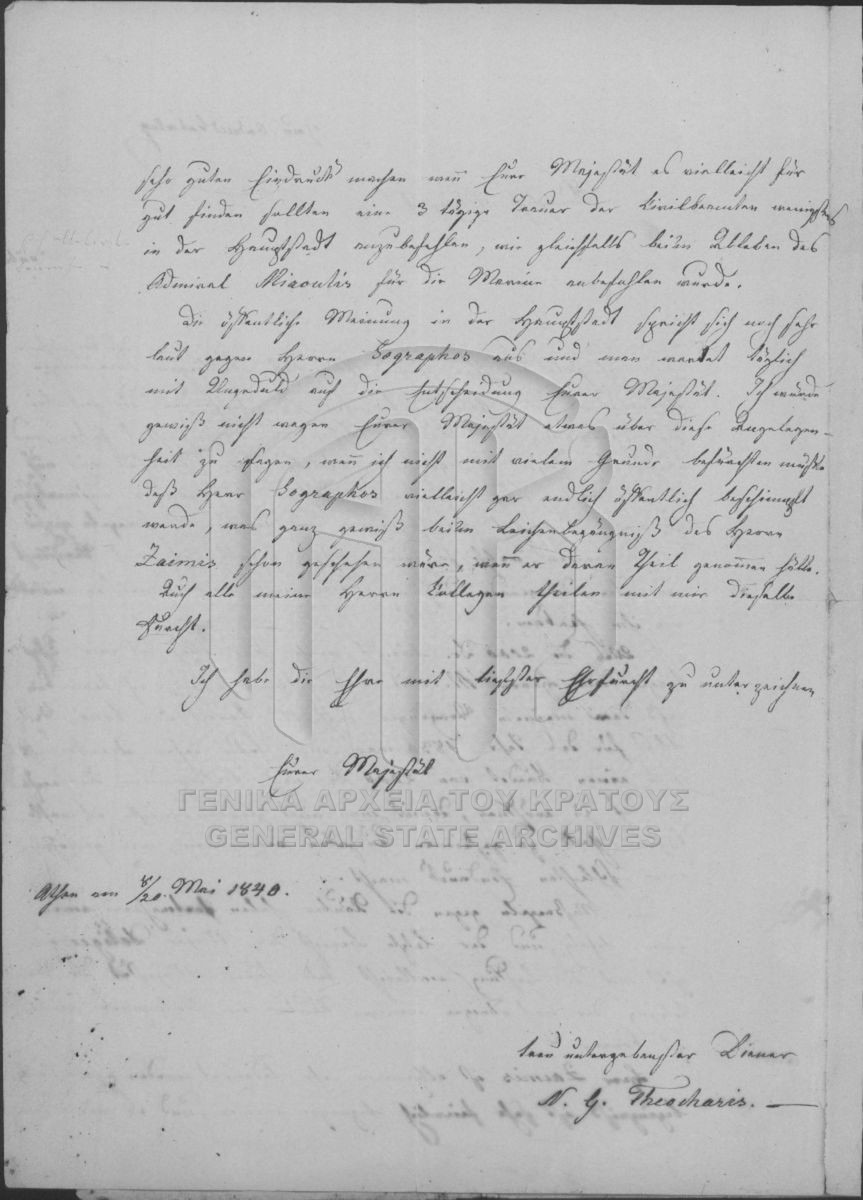 sehr guten Eindruck machen wenn Eure Majestät es vielleicht für
gut finden sollten eine 3 tägige Trauer der Civilbeamten wenigstens
in der Hauptstadt anzubefehlen, wie gleichfalls beim Ableben des
Admiral Miaoulis für die Marine anbefohlen wurde.
Die öffentliche Meinung in der Hauptstadt spricht sich noch sehr
laut gegen Herrn Sographos aus und man wartet täglich
mit Ungeduld auf die Entscheidung Eurer Majestät. Ich würde
gewiß nicht wagen Eurer Majestät etwas über diese Angelegen-
heit zu sagen, wenn ich nicht mit vielem Grunde befürchten müßte
daß Herr Sographos vielleicht gar endlich öffentlich beschimpft
werde, was ganz gewiß beim Leichenbegängniß des Herrn
Zaimis schon geschehen wäre, wenn er daran Theil genommen hätte.
Auch alle meine Herrn Collegen theilen mit mir dieselbe
Furcht.
Ich habe die Ehre mit tiefster Ehrfurcht zu unterzeichnen
Eurer Majestät
ΓΕΝΙΚΑ ΑΡΧΕΙΑ ΤΟΥ ΚΡΑΤΟΥΣ
GENERAL STATE ARCHIVES
Athen am 8/20. Mai 1840.
treu untergebenster Diener
N. G. Theocharis.